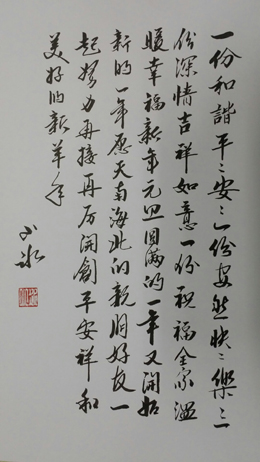 一份和諧平〻安〻一份安然快〻樂〻一
份深情吉祥如意一份祝福全家溫
暖幸福新年元旦圓滿的一年又開始
新的一年愿天南海北的親朋好友一
起努力再接再厉開創平安祥和
美好的新羊年
冰